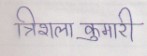 त्रिशला कुमारी